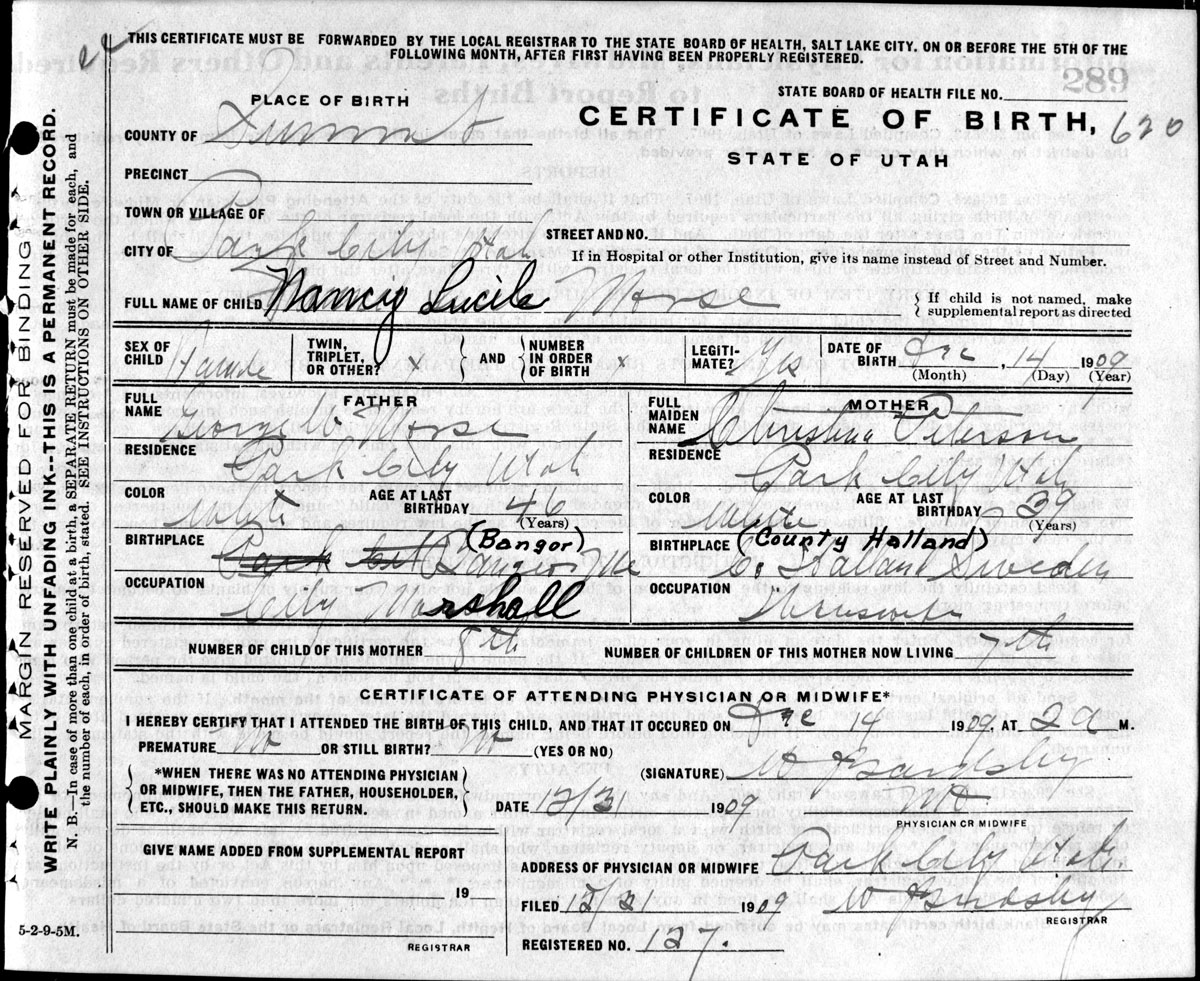 THIS CERTIFICATE MUST BE FORWARDED BY THE LOCAL REGISTRAR TO THE STATE BOARD OF HEALTH, SALT LAKE CITY. ON OR BEFORE THE 5TH OF THE
FOLLOWING MONTH, AFTER FIRST HAVING BEEN PROPERLY REGISTERED.
289
STATE BOARD OF HEALTH FILE NO.
PLACE OF BIRTH
CERTIFICATE OF BIRTH, 620
STATE OF UTAH
COUNTY OF Summit
PRECINCT
TOWN OR VILLAGE OF
STREET AND NO.
CITY OF Park City Utah
If in Hospital or other Institution, give its name instead of Street and Number.
FULL NAME OF CHILD Nancy Lucile Morse
{ If child is not named, make
supplemental report as directed
SEX OF CHILD Female
TWIN, TRIPLET, OR OTHER? x
{ AND { NUMBER IN ORDER OF BIRTH x
LEGITIMATE? Yes
DATE OF BIRTH Dec, 14 1909
(Month) (Day) (Year)
FATHER
FULL NAME George Morse
RESIDENCE Park City Utah
COLOR White
AGE AT LAST BIRTHDAY 46
(Years)
BIRTHPLACE Park City (Bangor) Bangor Me
OCCUPATION City Marshall
MOTHER
FULL MAIDEN NAME Christina Peterson
RESIDENCE Park City Utah
COLOR White
AGE AT LAST BIRTHDAY 39
(Years)
BIRTHPLACE (County Halland)
Co. Halland Sweden
OCCUPATION Housewife
NUMBER OF CHILD OF THIS MOTHER 8th
NUMBER OF CHILDREN OF THIS MOTHER NOW LIVING 7th
CERTIFICATE OF ATTENDING PHYSICIAN OR MIDWIFE*
I HEREBY CERTIFY THAT I ATTENDED THE BIRTH OF THIS CHILD, AND THAT IT OCCURED ON Dec 14 1909 AT 2a M.
PREMATURE No OR STILL BIRTH? No (YES OR NO)
{ *WHEN THERE WAS NO ATTENDING PHYSICIAN
OR MIDWIFE, THEN THE FATHER, HOUSEHOLDER,
ETC., SHOULD MAKE THIS RETURN. }
(SIGNATURE) W Bardsley
MD
PHYSICIAN OR MIDWIFE
DATE 12/31 1909
GIVE NAME ADDED FROM SUPPLEMENTAL REPORT
19
REGISTRAR
5-2-9-5M.
ADDRESS OF PHYSICIAN OR MIDWIFE Park City Utah
FILED 12/31 1909 W Bardsley
REGISTRAR
REGISTERED NO. 127.
MARGIN RESERVED FOR BINDING
WRITE PLAINLY WITH UNFADING INK--THIS IS A PERMANENT RECORD.
N. B.—In case of more than one child at a birth, a SEPARATE RETURN must be made for each, and
the number of each, in order of birth, stated. SEE INSTRUCTIONS ON OTHER SIDE.